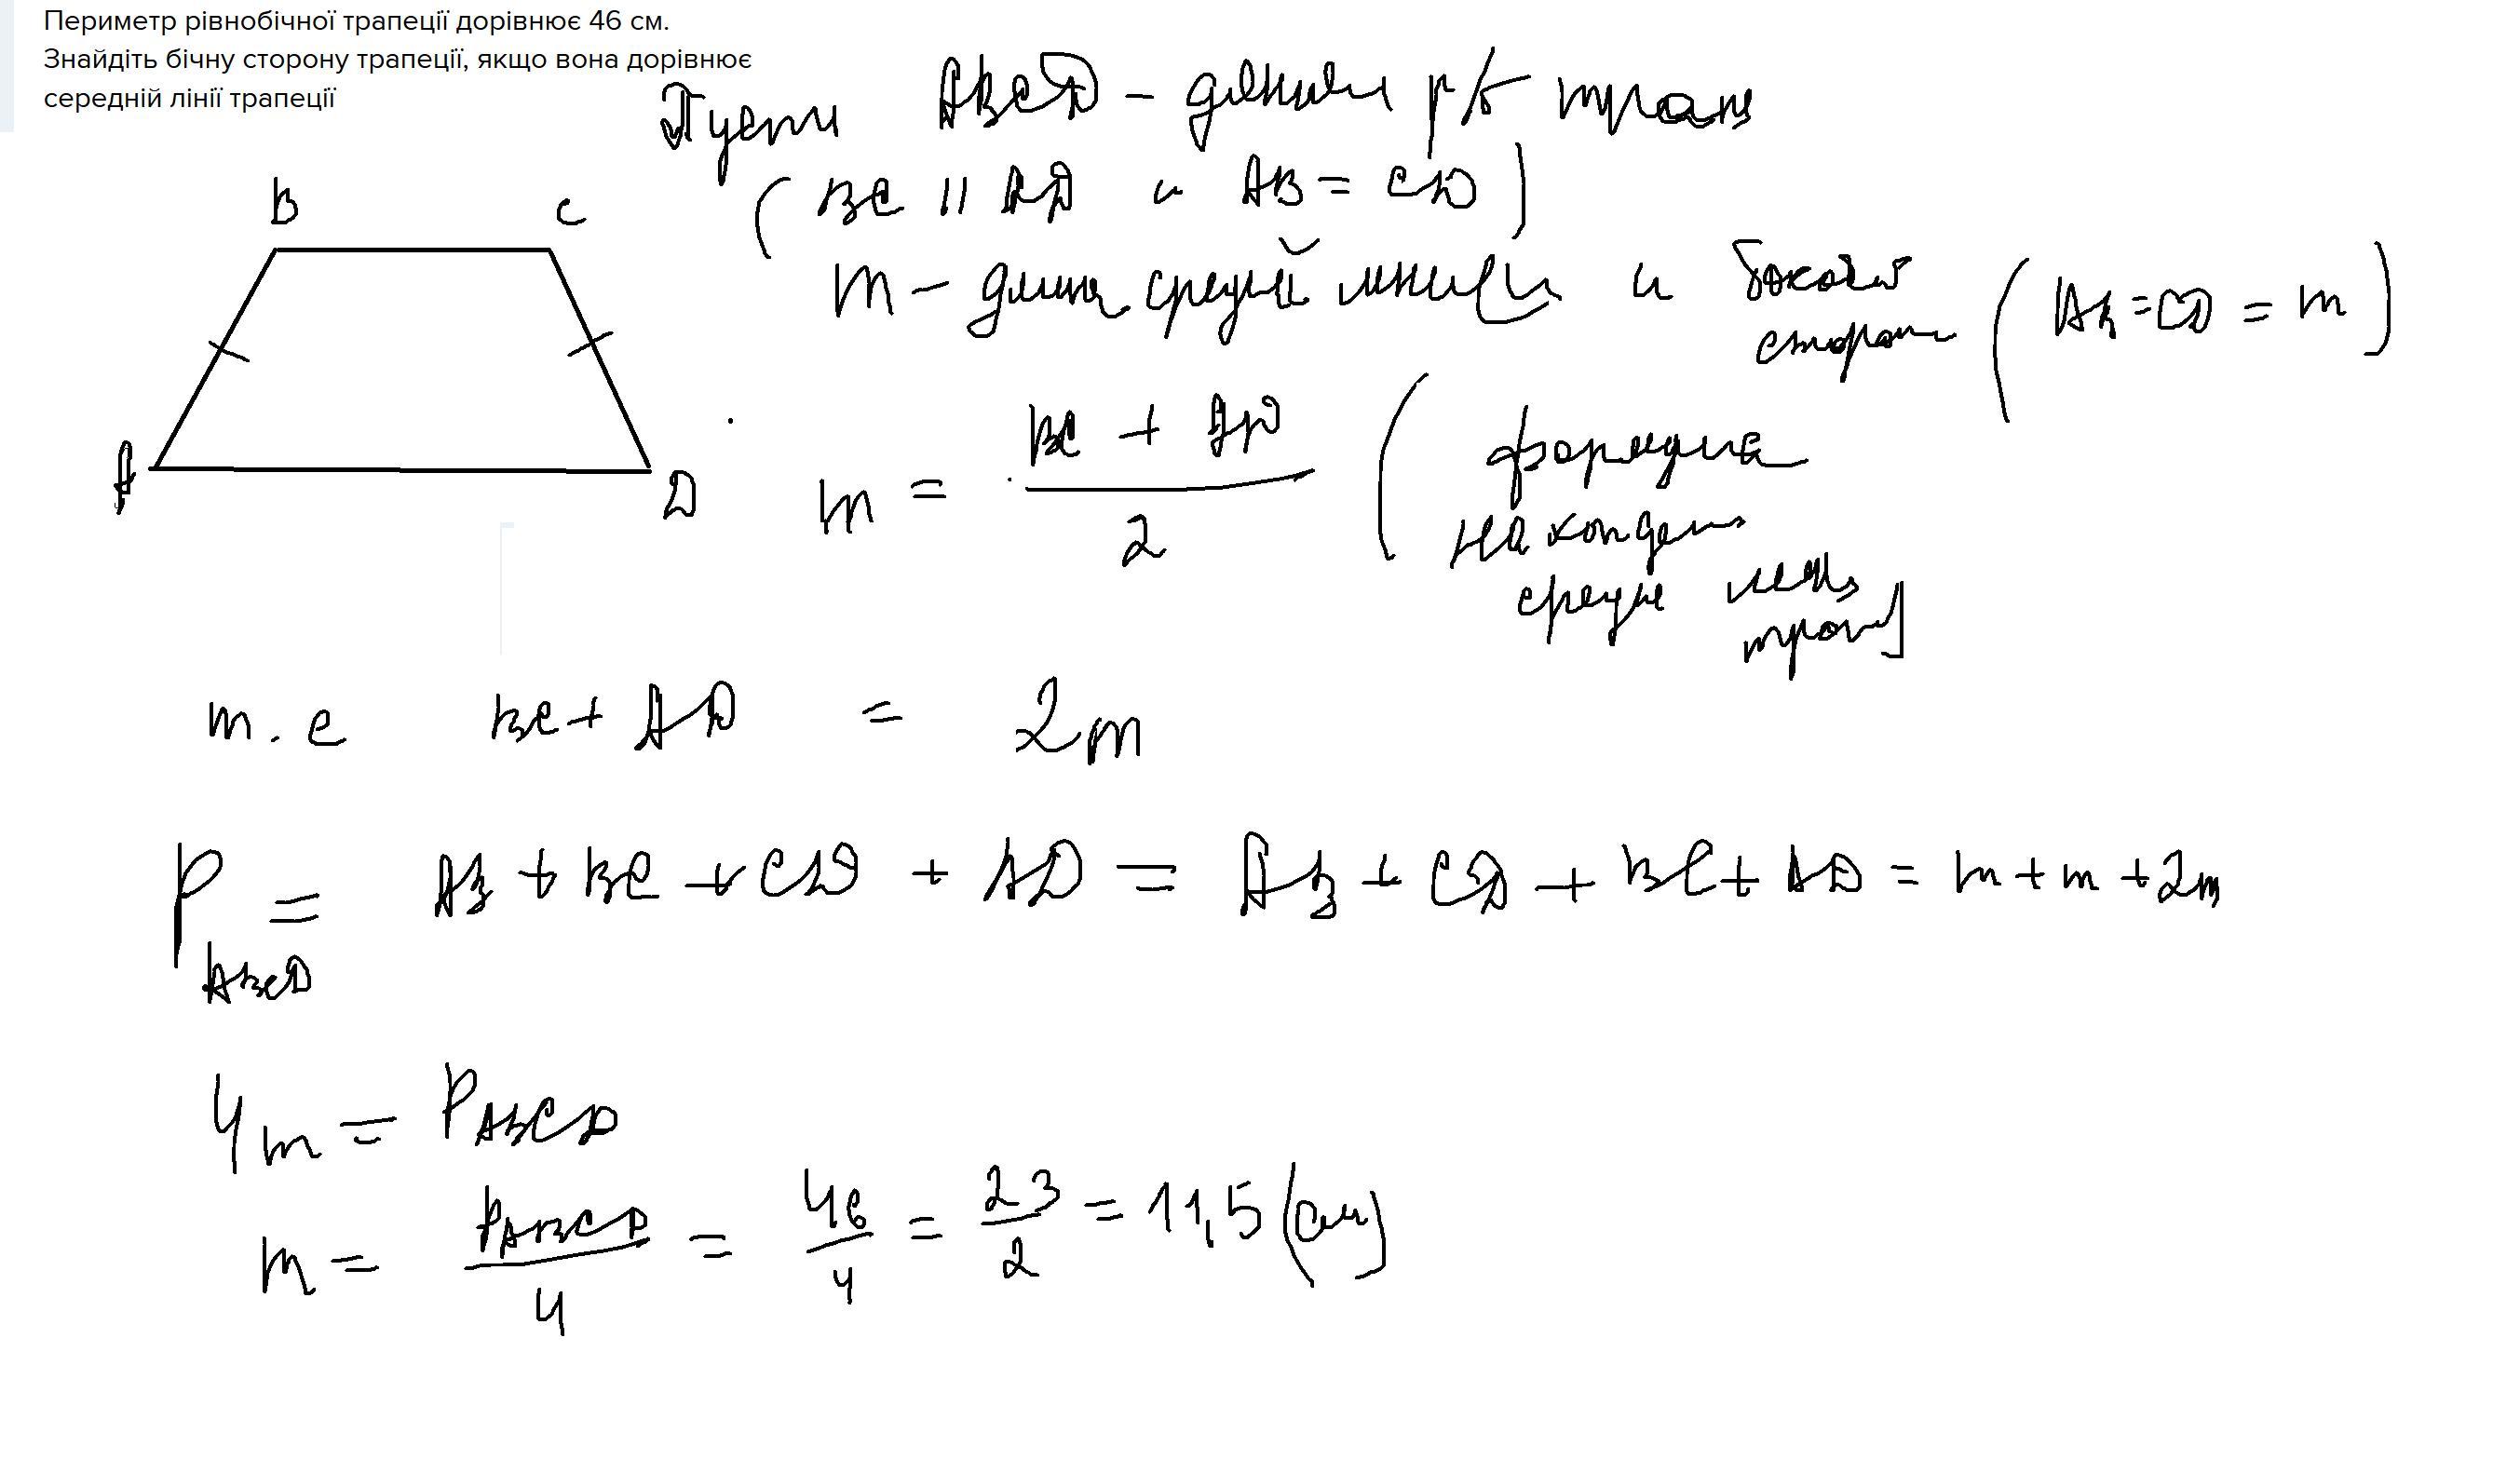 Периметр рівнобічної трапеції дорівнює 46 см.
Знайдіть бічну сторону трапеції, якщо вона дорівнює
середній лінії трапеції
Пусть ABCD - р/б трап
(BC || AD и AB = CD)
m - длина средней линии и боковой
сторон (AB = CD = m)
B C
A D
m = BC + AD / 2 (формула
нахожден
средн
трап)
т.е BC + AD = 2m
P ABCD = AB + BC + CD + AD = AB + CD + BC + AD = m + m + 2m
4m = PABCD
m = PABCD / 4 = 46 / 4 = 23 / 2 = 11,5 (см)